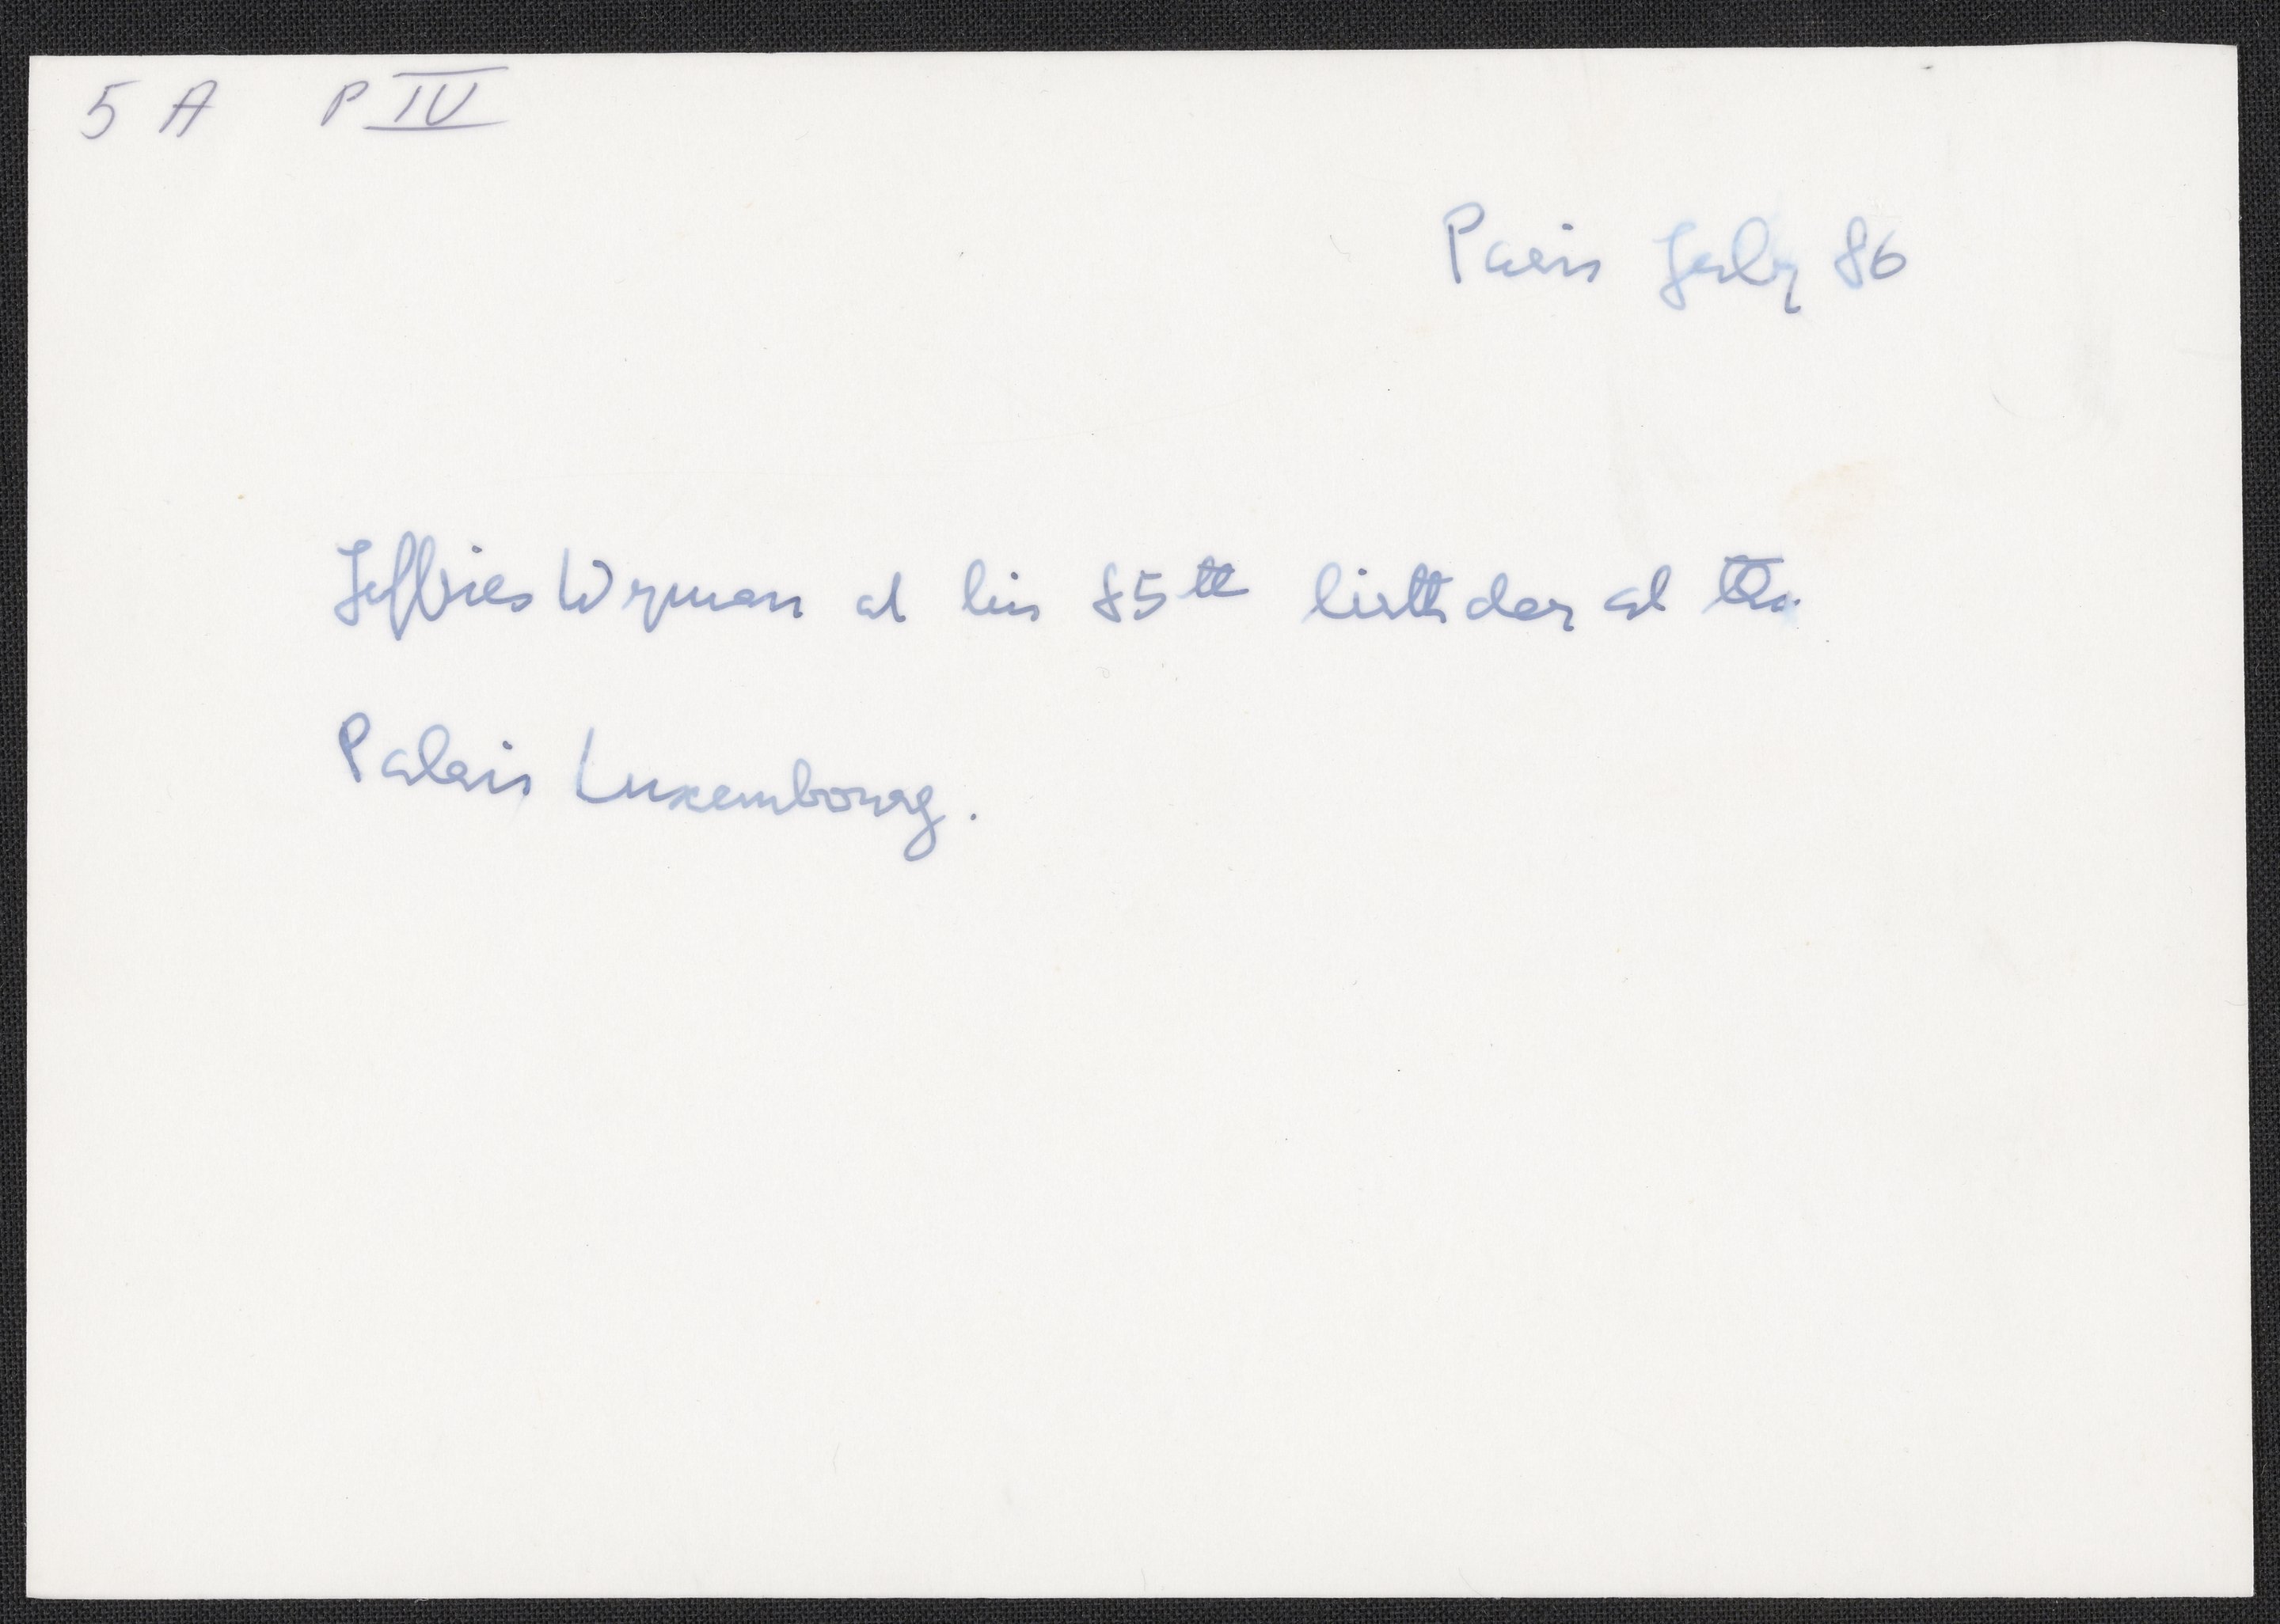 5 A P IV
Paris July 86
Jeffries Wyman at his 85th birthday at the
Palais Luxembourg.